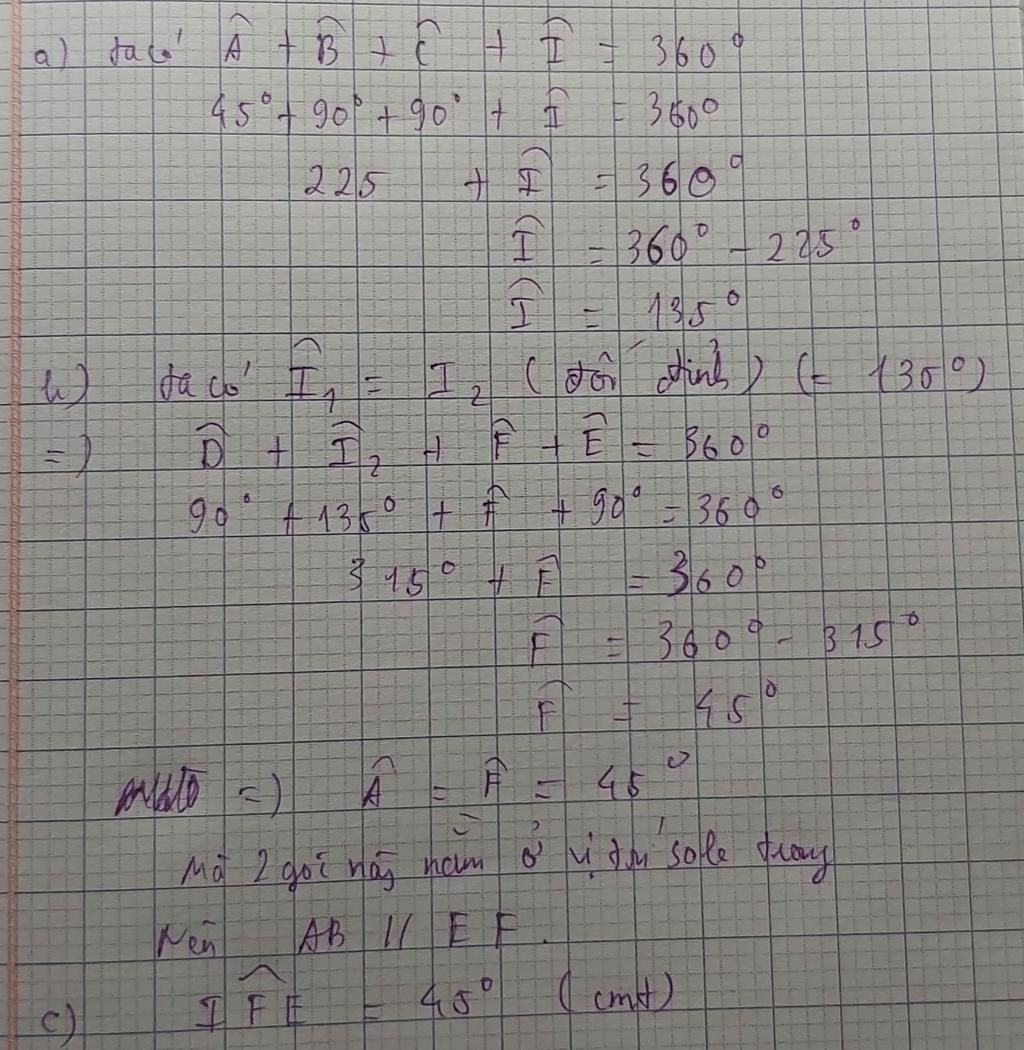 a) ta có Â + B̂ + Ĉ + Î = 360°
45° + 90° + 90° + Î = 360°
225 + Î = 360°
Î = 360° - 225°
Î = 135°
b) ta có Î₁ = I₂ (đối đỉnh) (= 135°)
=) D̂ + Î₂ + F̂ + Ê = 360°
90° + 135° + F̂ + 90° = 360°
315° + F̂ = 360°
F̂ = 360° - 315°
F̂ = 45°
=) Â = F̂ = 45°
Mà 2 góc này nằm ở vị trí sole trong
Nên AB // EF.
c) IF̂E = 45° (cmt)